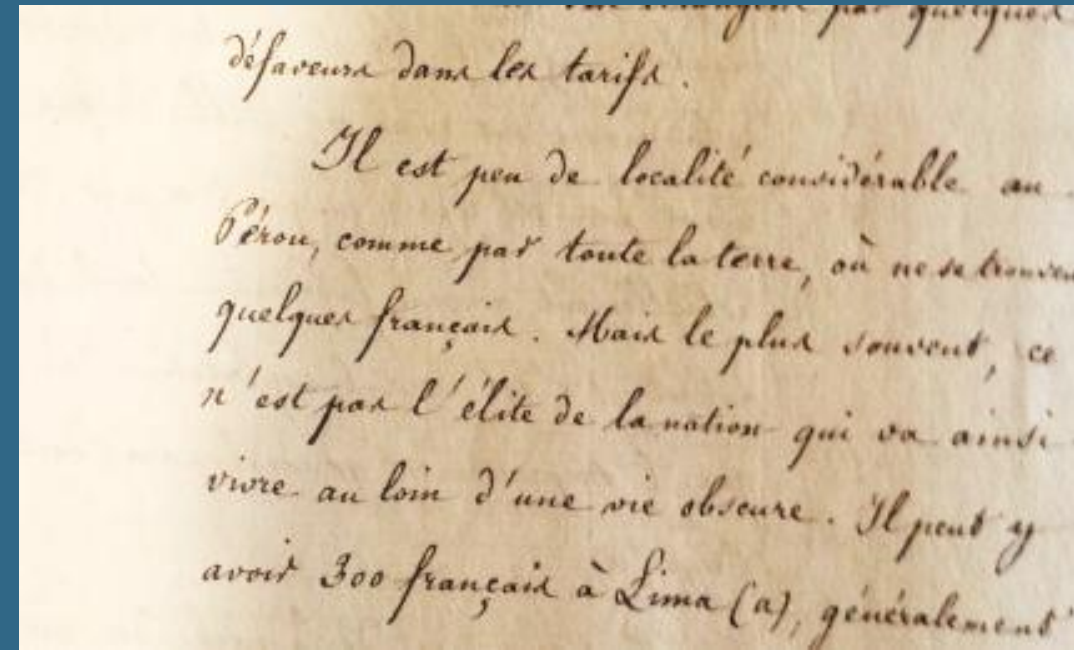 par quelques
défaveurs dans les tarifs.
Il est peu de localité considérable au
Pérou, comme par toute la terre, où ne se trouven
quelques français. Mais le plus souvent, ce
n'est pas l'élite de la nation qui va ainsi
vivre au loin d'une vie obscure. Il peut y
avoir 300 français à Lima (a), généralement